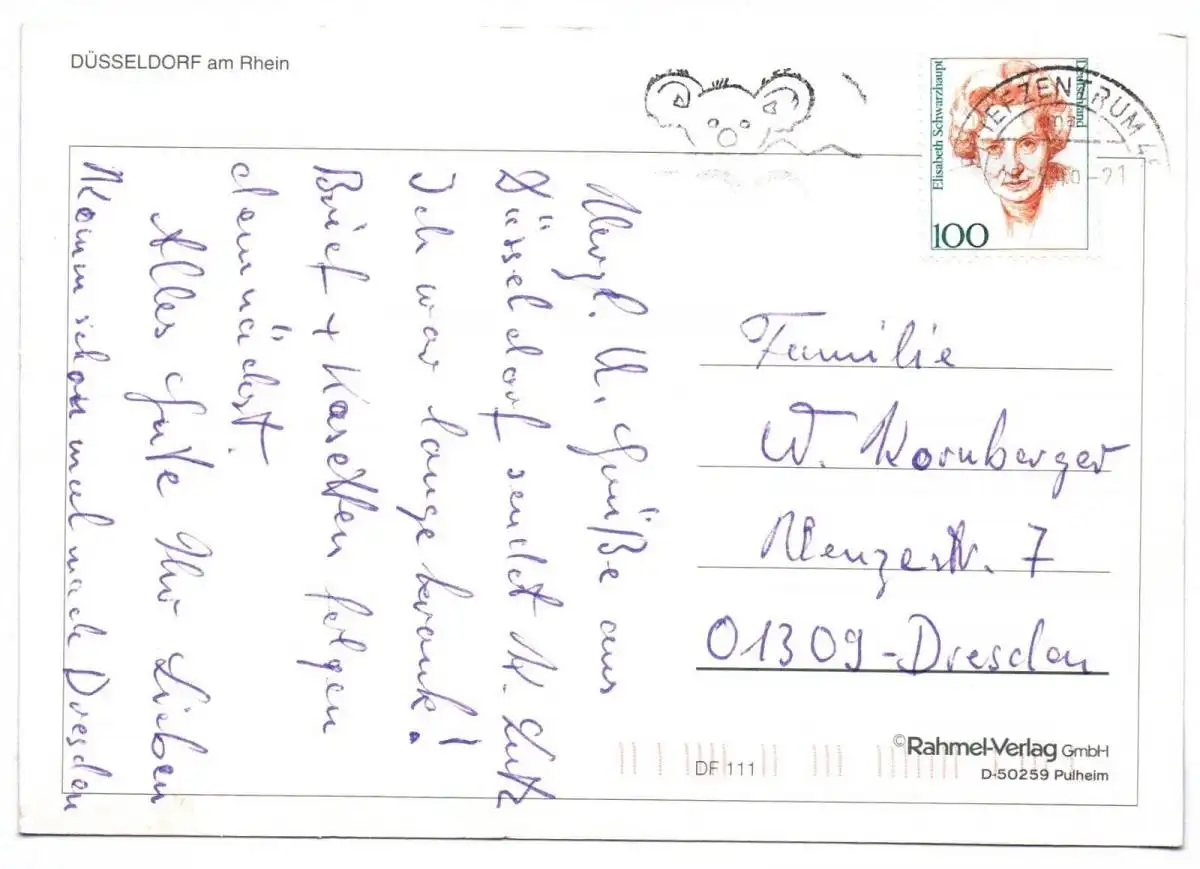 DÜSSELDORF am Rhein
Elisabeth Schwarzhaupt
Deutschland
100
BRIEFZENTRUM 4
-21
Herzl. U. Grüße aus
Düsseldorf sendet H. Lutz
Ich war lange krank!
Brief + Kasetten folgen
demnächst.
Alles Gute Ihr Lieben
Komm schon mal nach Dresden
Familie
W. Kornberger
01309-Dresden
©Rahmel-Verlag GmbH
D-50259 Pulheim
DF 111